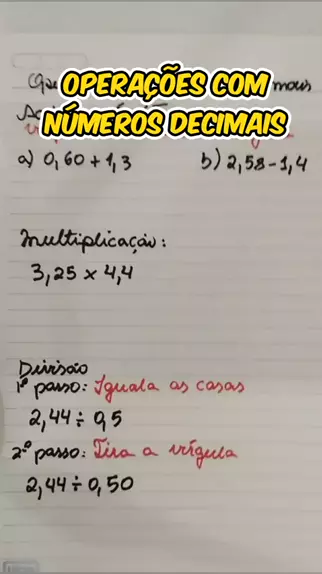 OPERAÇÕES COM
NÚMEROS DECIMAIS
a) 0,60 + 1,3
b) 2,58 - 1,4
Multiplicação:
3,25 × 4,4
Divisão
1º passo: Iguala as casas
2,44 ÷ 0,5
2º passo: Tira a vírgula
2,44 ÷ 0,50